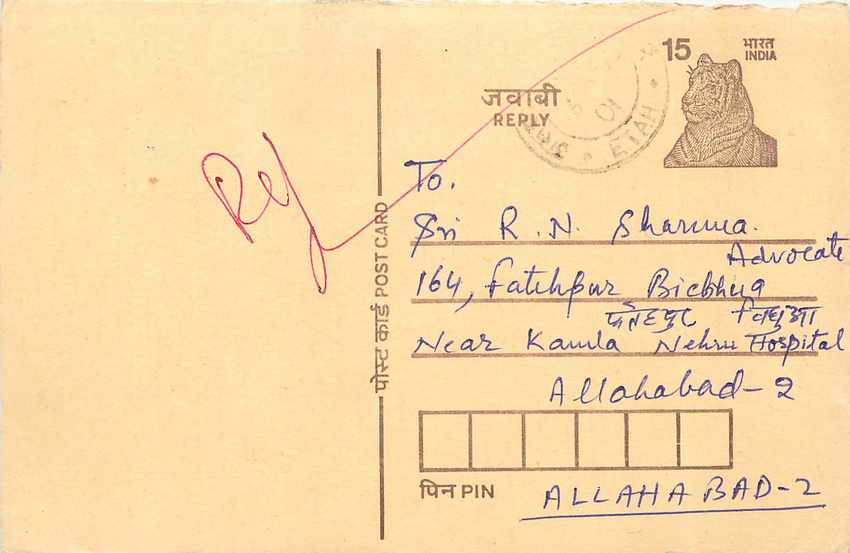 15 भारत
INDIA
जवाबी
REPLY
ETAH
Ref
पोस्ट कार्ड POST CARD
To.
Sri R. N. Sharma.
Advocate
164, Fatehpur Bichhua
फतेहपुर बिछुआ
Near Kamla Nehru Hospital
Allahabad-2
पिन PIN
ALLAHABAD-2